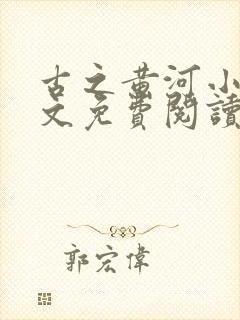 古之黃河小
文免費閱讀
郭宏偉